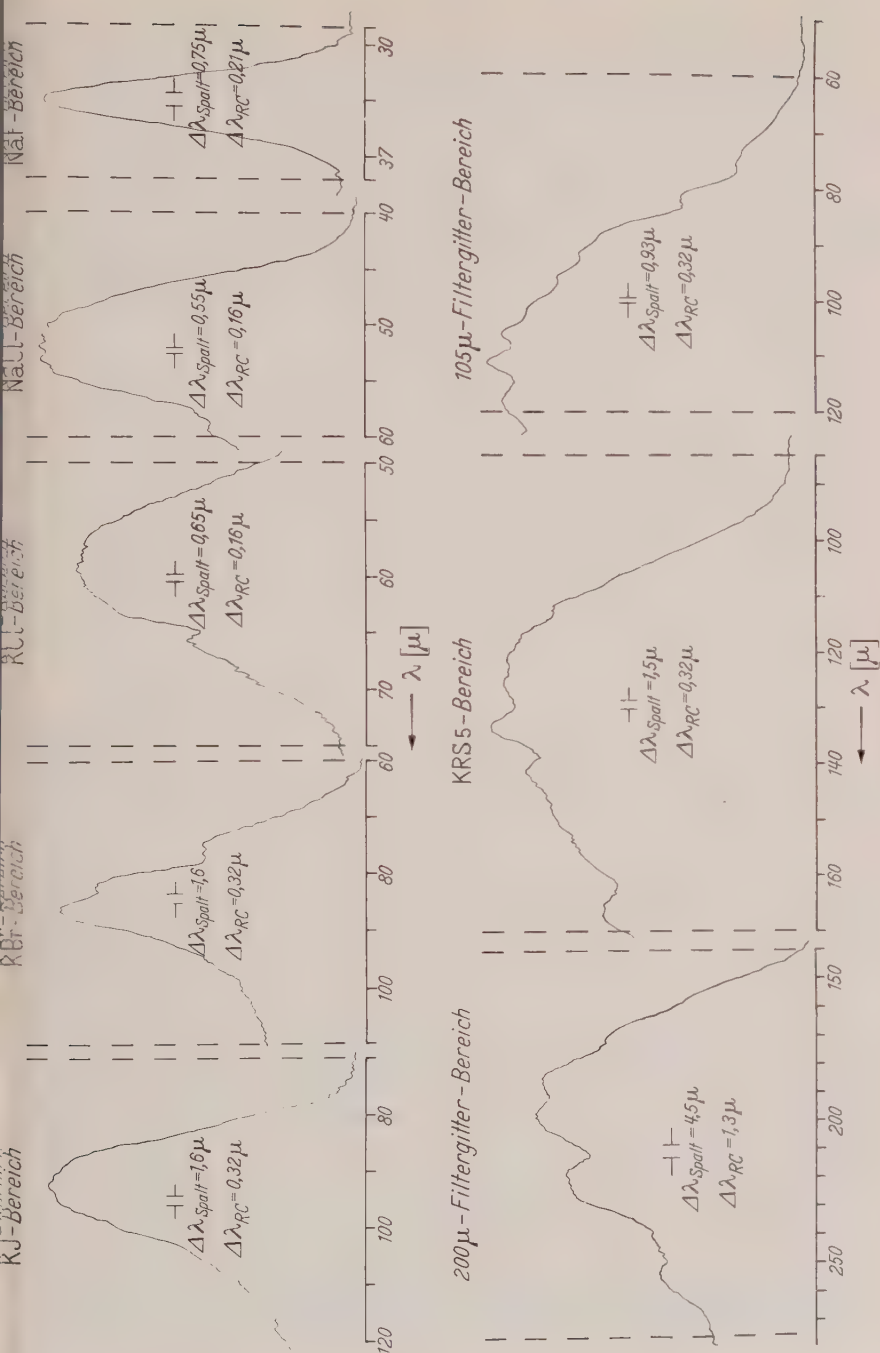 KJ-Bereich
KBr-Bereich
KCl-Bereich
NaCl-Bereich
NaF-Bereich
Δλ_Spalt=1,6μ
Δλ_RC=0,32μ
Δλ_Spalt=1,6
Δλ_RC=0,32μ
Δλ_Spalt=0,65μ
Δλ_RC=0,16μ
Δλ_Spalt=0,55μ
Δλ_RC=0,16μ
Δλ_Spalt=0,75μ
Δλ_RC=0,21μ
120 100 80 100 80 60 70 60 50 60 50 40 37 30
λ [μ]
200μ-Filtergitter-Bereich
KRS5-Bereich
105μ-Filtergitter-Bereich
Δλ_Spalt=4,5μ
Δλ_RC=1,3μ
Δλ_Spalt=1,5μ
Δλ_RC=0,32μ
Δλ_Spalt=0,93μ
Δλ_RC=0,32μ
250 200 150 160 140 120 100 120 100 80 60
λ [μ]